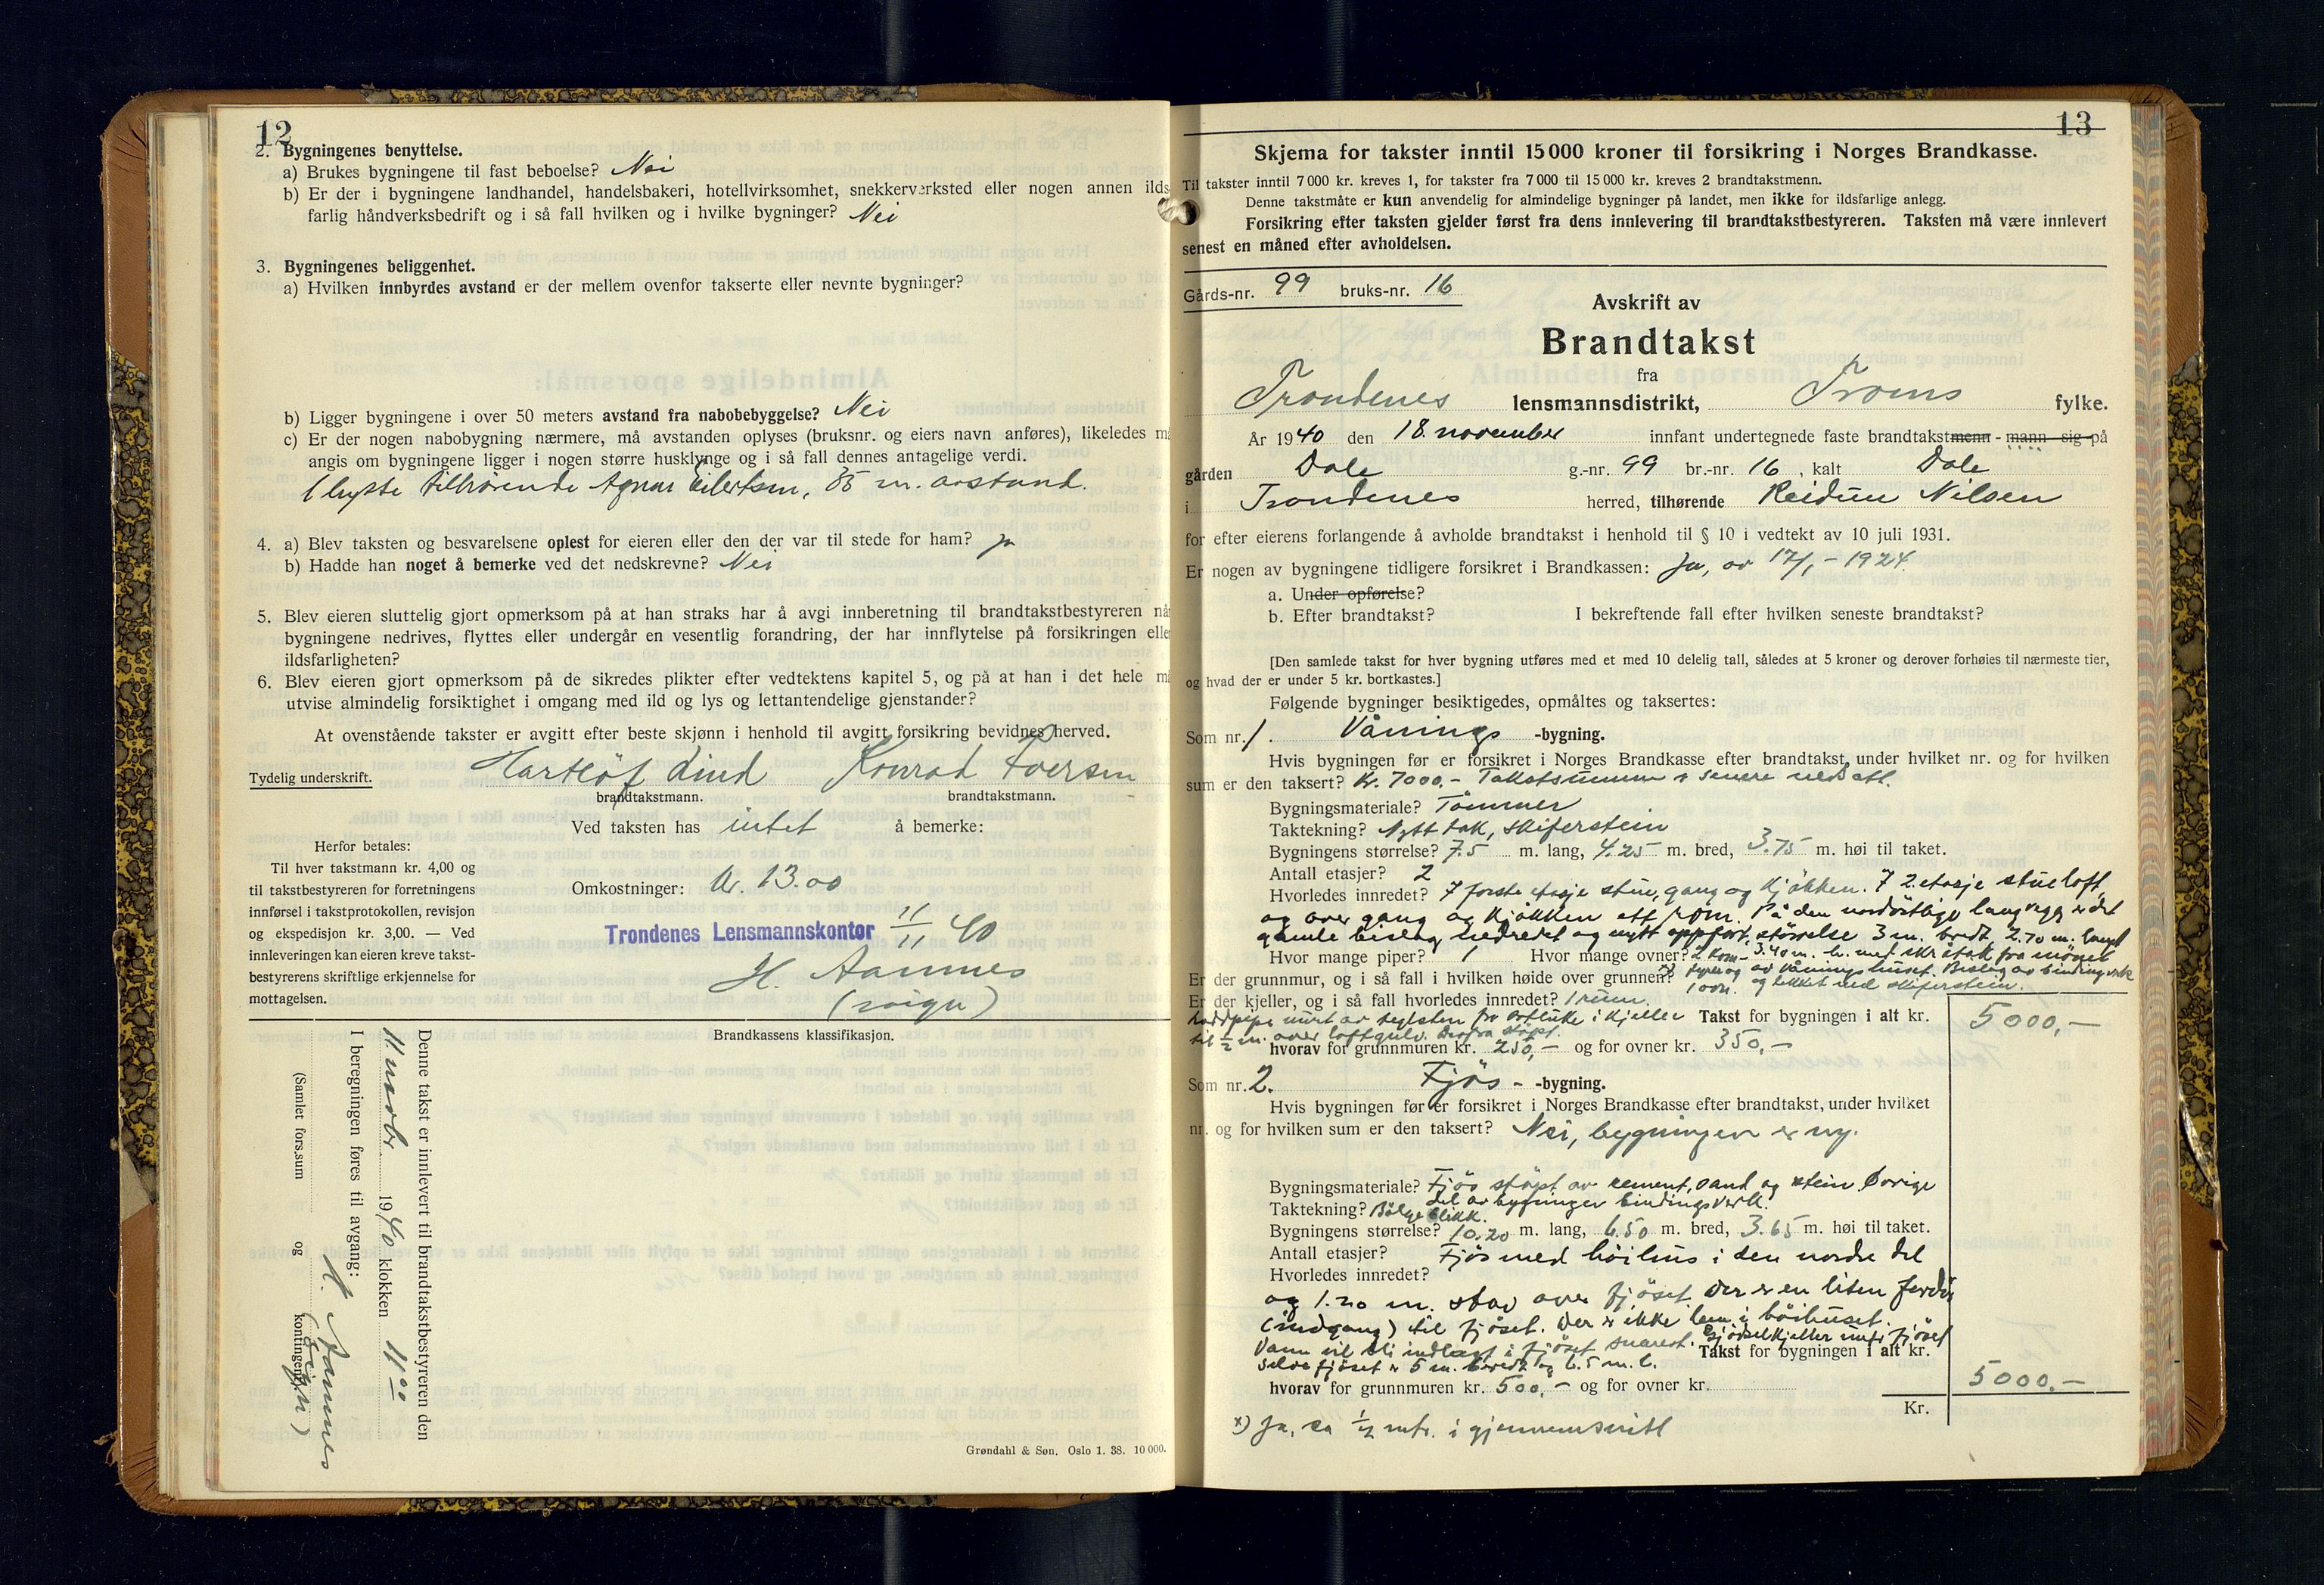 12
2. Bygningenes benyttelse.
a) Brukes bygningene til fast beboelse? Nei
b) Er der i bygningene landhandel, handelsbakeri, hotellvirksomhet, snekkerverksted eller nogen annen ilds-
farlig håndverksbedrift og i så fall hvilken og i hvilke bygninger? Nei
3. Bygningenes beliggenhet.
a) Hvilken innbyrdes avstand er der mellem ovenfor takserte eller nevnte bygninger?
b) Ligger bygningene i over 50 meters avstand fra nabobebyggelse? Nei
c) Er der nogen nabobygning nærmere, må avstanden oplyses (bruksnr. og eiers navn anføres), likeledes må
angis om bygningene ligger i nogen større husklynge og i så fall dennes antagelige verdi.
tilhørende Agnar Eilertsen, 35 m. avstand.
4. a) Blev taksten og besvarelsene oplest for eieren eller den der var til stede for ham? Ja
b) Hadde han noget å bemerke ved det nedskrevne? Nei
5. Blev eieren sluttelig gjort opmerksom på at han straks har å avgi innberetning til brandtakstbestyreren når
bygningene nedrives, flyttes eller undergår en vesentlig forandring, der har innflytelse på forsikringen eller
ildsfarligheten?
6. Blev eieren gjort opmerksom på de sikredes plikter efter vedtektens kapitel 5, og på at han i det hele må
utvise almindelig forsiktighet i omgang med ild og lys og lettantendelige gjenstander?
At ovenstående takster er avgitt efter beste skjønn i henhold til avgitt forsikring bevidnes herved.
Tydelig underskrift. Hartløf Lind Konrad Iversen
brandtakstmann. brandtakstmann.
Ved taksten has intet å bemerke:
Herfor betales:
Til hver takstmann kr. 4,00 og
til takstbestyreren for forretningens
innførsel i takstprotokollen, revisjon
og ekspedisjon kr. 3,00. — Ved
innleveringen kan eieren kreve takst-
bestyrerens skriftlige erkjennelse for
mottagelsen.
Omkostninger: kr. 13.00
Trondenes Lensmannskontor 11/11 40
H. Aannes
(sign)
Brandkassens klassifikasjon.
Denne takst er innlevert til brandtakstbestyreren den
11. novbr. 1940 klokken 11 00
I beregningen føres til avgang:
H. Aannes
(sign)
(Samlet fors.sum og kontingent)
Grøndahl & Søn. Oslo 1. 38. 10 000.
13
Skjema for takster inntil 15 000 kroner til forsikring i Norges Brandkasse.
Til takster inntil 7 000 kr. kreves 1, for takster fra 7 000 til 15 000 kr. kreves 2 brandtakstmenn.
Denne takstmåte er kun anvendelig for almindelige bygninger på landet, men ikke for ildsfarlige anlegg.
Forsikring efter taksten gjelder først fra dens innlevering til brandtakstbestyreren. Taksten må være innlevert
senest en måned efter avholdelsen.
Gårds-nr. 99 bruks-nr. 16
Avskrift av
Brandtakst
fra
Trondenes lensmannsdistrikt, Troms fylke.
År 1940 den 18. november innfant undertegnede faste brandtakstmenn - mann sig på
gården Dale g.-nr. 99 br.-nr. 16, kalt Dale
i Trondenes herred, tilhørende Reidun Nilsen
for efter eierens forlangende å avholde brandtakst i henhold til § 10 i vedtekt av 10 juli 1931.
Er nogen av bygningene tidligere forsikret i Brandkassen: Ja, av 17/1 - 1924.
a. Under opførelse?
b. Efter brandtakst? I bekreftende fall efter hvilken seneste brandtakst?
[Den samlede takst for hver bygning utføres med et med 10 delelig tall, således at 5 kroner og derover forhøies til nærmeste tier,
og hvad der er under 5 kr. bortkastes.]
Følgende bygninger besiktigedes, opmåltes og taksertes:
Som nr. 1. Vånings -bygning.
Hvis bygningen før er forsikret i Norges Brandkasse efter brandtakst, under hvilket nr. og for hvilken
sum er den taksert? Kr. 7000,- Takstsummen er senere nedsatt.
Bygningsmateriale? Tømmer
Taktekning? Nytt tak, skiferstein
Bygningens størrelse? 7.5 m. lang, 4.25 m. bred, 3.75 m. høi til taket.
Antall etasjer? 2
Hvorledes innredet? I første etasje stue, gang og kjøkken. I 2. etasje stueloft,
og over gang og kjøkken ett rom. På den nordøstlige langvegg er det
gamle bislag nedrevet og nytt oppført, størrelse 3 m. bredt 2.70 m. langt
3.40 m. h. med skråtak fra mønet
av våningshuset. Bislag av bindingsverk
og tekket med skiferstein.
Hvor mange piper? 1 Hvor mange ovner? 2 kom-
fyrer og
1 ovn.
Er der grunnmur, og i så fall i hvilken høide over grunnen? x)
Er der kjeller, og i så fall hvorledes innredet? 1 rum.
murt av teglsten fra sotluke i kjeller
til 1/2 m. over loftgulv. Derfra støpt.
Takst for bygningen i alt kr. 5000,-
hvorav for grunnmuren kr. 250,- og for ovner kr. 350,-
Som nr. 2. Fjøs- -bygning.
Hvis bygningen før er forsikret i Norges Brandkasse efter brandtakst, under hvilket
nr. og for hvilken sum er den taksert? Nei, bygningen er ny.
Bygningsmateriale? Fjøs støpt av cement, sand og stein. Øvrige
del av bygningen bindingsverk.
Taktekning? Bølgeblikk.
Bygningens størrelse? 10.20 m. lang, 6.50 m. bred, 3.65 m. høi til taket.
Antall etasjer?
Hvorledes innredet? Fjøs med høihus i den nordre del
og 1.20 m. stav over fjøset. Der er en liten
(indgang) til fjøset. Der er ikke lem i høihuset.
Gjødselkjeller under fjøset
Vann vil bli indlagt i fjøset snarest.
Selve fjøset er 5 m. bredt og 6.5 m. l.
Takst for bygningen i alt kr. 5000.-
hvorav for grunnmuren kr. 500,- og for ovner kr.
Kr.
x) Ja, ca 1/2 mtr. i gjennemsnitt